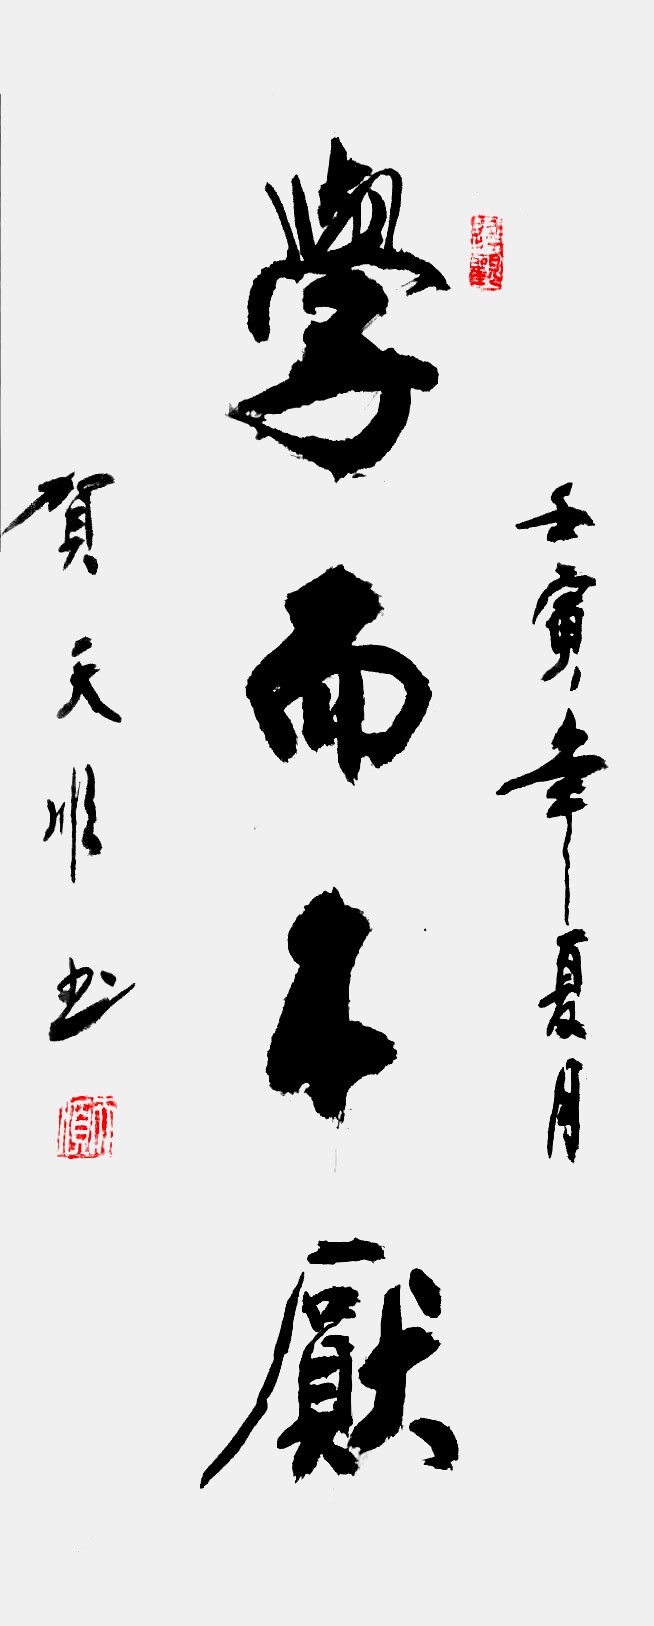 壬寅年夏月
學而不厭
賀天順书